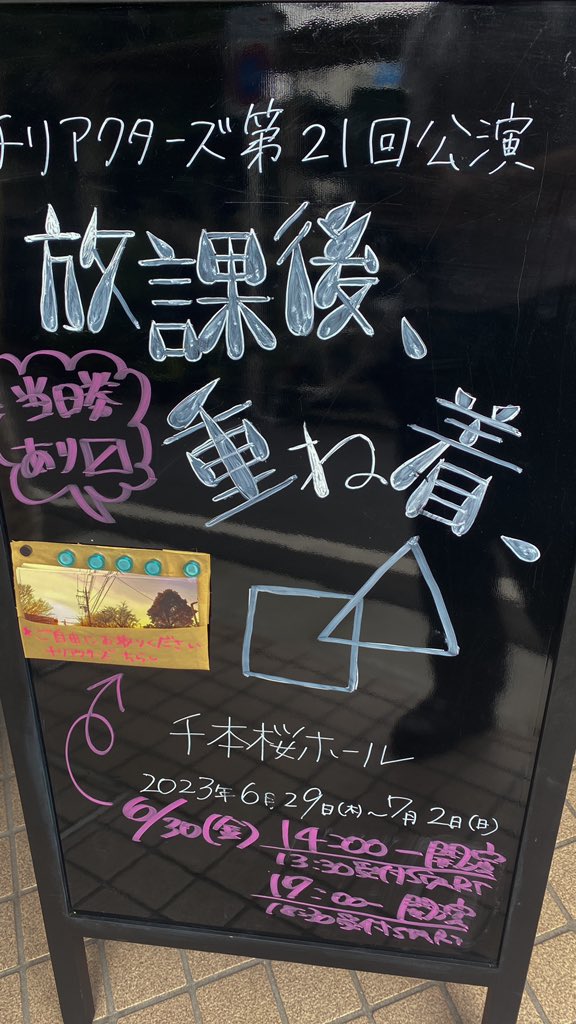 チリアクターズ第21回公演
放課後、
当日券
あり
重ね着、
*ご自由にお取りください
チリアクターズちらし
千本桜ホール
2023年6月29日(木)~7月2日(日)
6/30(金) 14:00 ー 開演
13:30受付START
19:00 ー 開演
18:30受付START